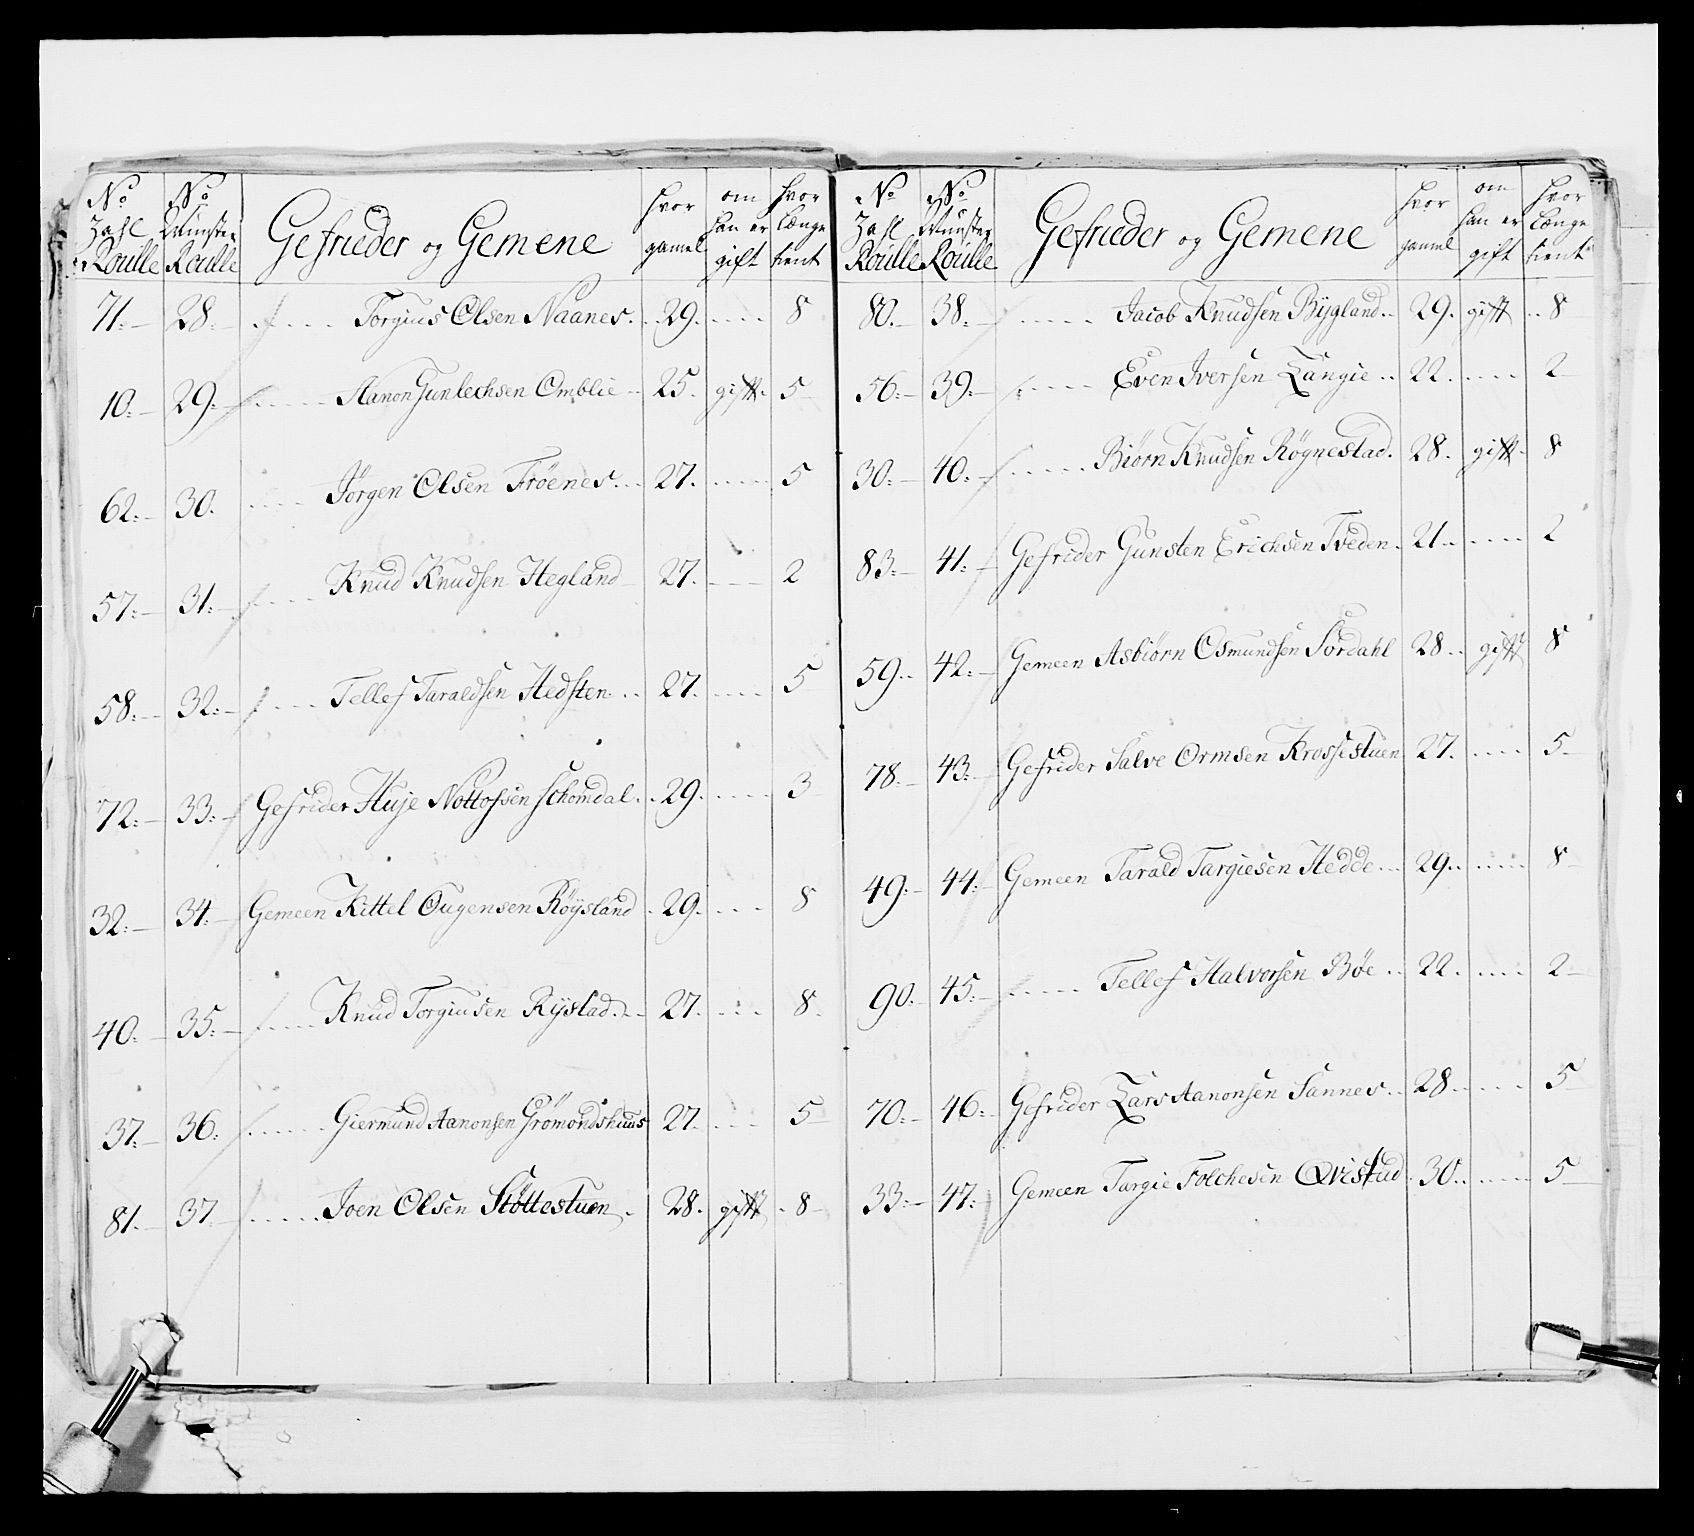 No Zahl Roulle | No Munster Roulle | Gefrieder og Gemene | hvor gamel | om han er gift | hvor længe tient
71. 28. Torgius Olsen Naanes. 29. 8
10. 29. Aanon Gunlechsen Omblie 25. gift. 5
62. 30. Jörgen Olsen Fröenes. 27. 5
57. 31. Knud Knudsen Hegland 27. 2
58. 32. Tellef Taraldsen Hedsten 27. 5
72. 33. Gefrider Huje Nottofsen Schomdal. 29. 3
32. 34. Gemeen Kittel Ougensen Röysland 29. 8
40. 35. Knud Torgiusen Rystad. 27. 8.
37. 36. Giermund Aanonsen Grömondshuus 27. 5
81. 37 Joen Olsen Stöttestuen. 28. gift 8
No Zahl Roulle | No Munster Roulle | Gefrieder og Gemene | hvor gamel | om han er gift | hvor længe tient
80. 38. Jacob Knudsen Bygland. 29. gift 8
56. 39. Even Iversen Langie 22. 2
30. 40. Biörn Knudsen Rögnestad. 28. gift. 8
83. 41. Gefrider Gunsten Erichsen Tveden. 21. 2
59. 42. Gemeen Asbiörn Osmundsen Sordahl 28. gift 8
78. 43. Gefrider Salve Ormsen Krossestuen 27. 5
49. 44. Gemeen Tarald Targiesen Hedde 29. 8
90. 45. Tellef Halvorsen Böe 22. 2
70. 46. Gefrider Lars Aanonsen Sannes 28. 5
33. 47. Gemeen Targie Folchesen Qvistad 30. 5